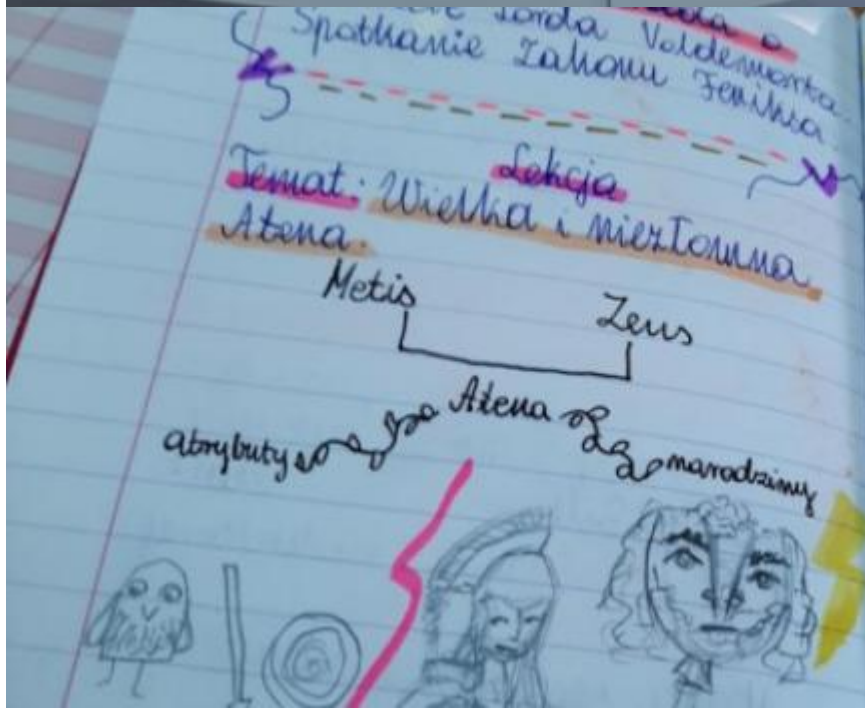 Lorda Voldemorta.
Spotkanie Zakonu Feniksa
Lekcja
Temat: Wielka i niezłomna
Atena.
Metis
Zeus
Atena
atrybuty
narodziny